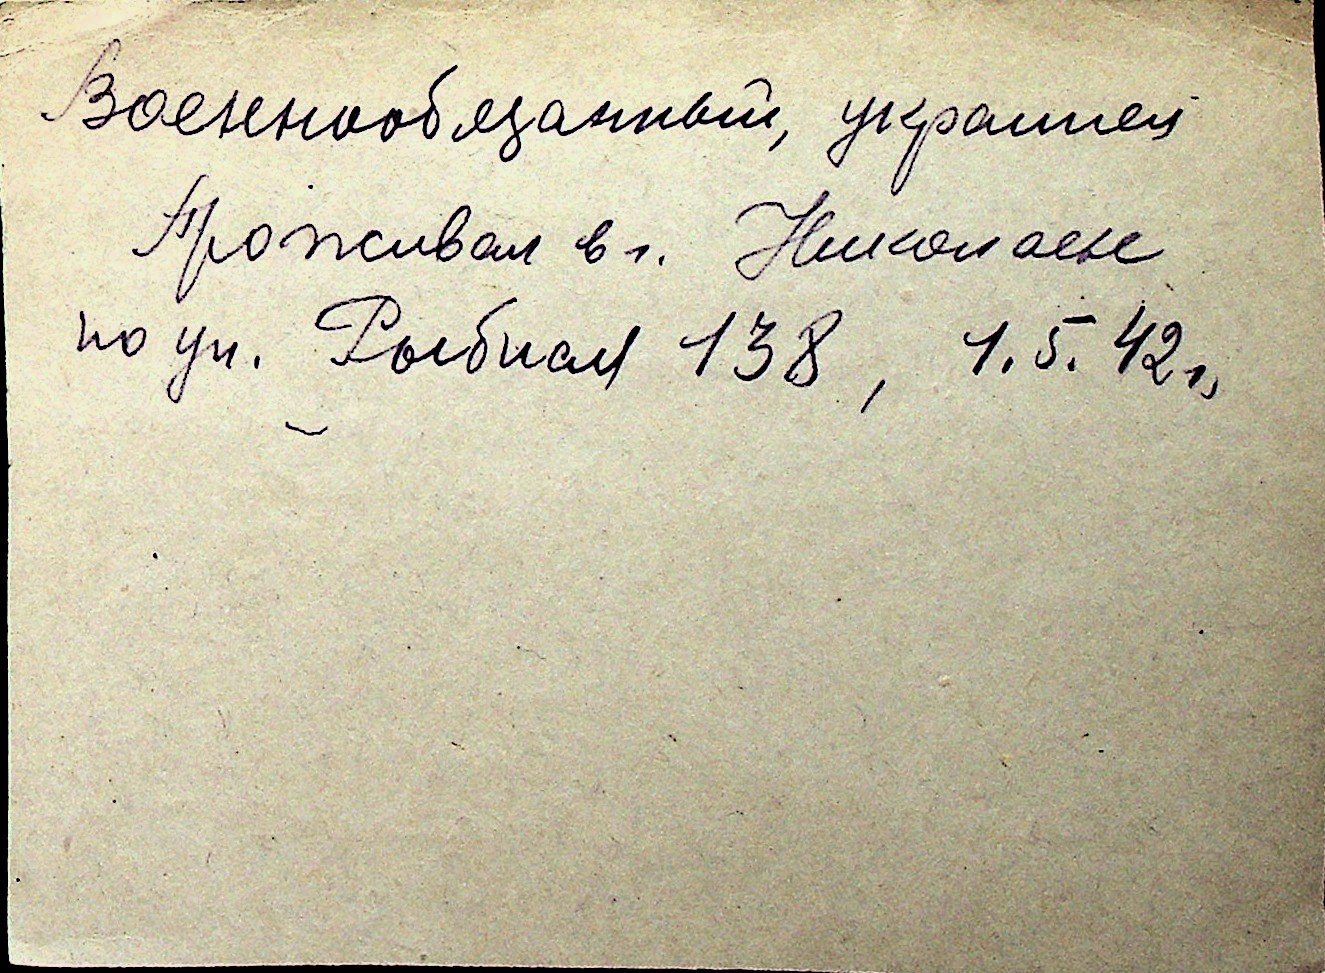 Военнообязанный, украинец
Проживал в г. Николаеве
по ул. Рыбная 138, 1.5.42г,